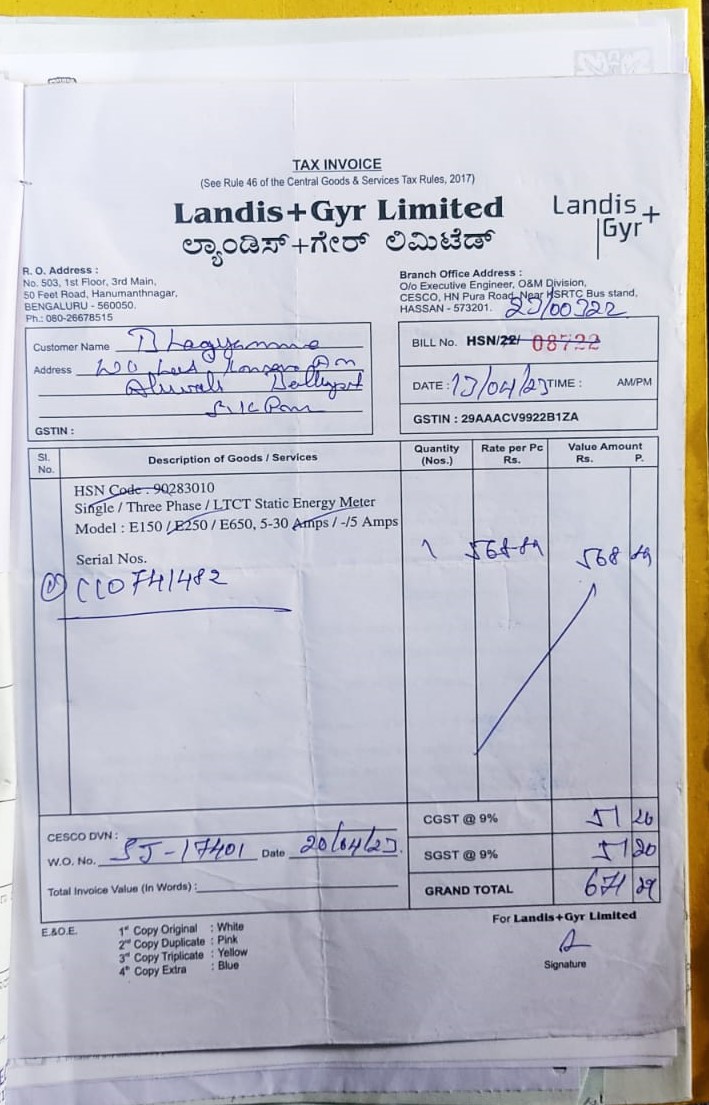 TAX INVOICE
(See Rule 46 of the Central Goods & Services Tax Rules, 2017)
Landis+Gyr Limited
ಲ್ಯಾಂಡಿಸ್+ಗೇರ್ ಲಿಮಿಟೆಡ್
Landis+
Gyr
R. O. Address :
No. 503, 1st Floor, 3rd Main,
50 Feet Road, Hanumanthnagar,
BENGALURU - 560050.
Ph.: 080-26678515
Branch Office Address :
O/o Executive Engineer, O&M Division,
CESCO, HN Pura Road, Near KSRTC Bus stand,
HASSAN - 573201.
23/00322
Customer Name
Address
GSTIN :
BILL No. HSN/22/ 08722
DATE : 13/04/23 TIME : AM/PM
GSTIN : 29AAACV9922B1ZA
Sl. No. Description of Goods / Services Quantity (Nos.) Rate per Pc Rs. Value Amount Rs. P.
HSN Code : 90283010
Single / Three Phase / LTCT Static Energy Meter
Model : E150 / E250 / E650, 5-30 Amps / -/5 Amps
1 568-89 568 89
Serial Nos.
CC0741482
CGST @ 9% 51 20
SGST @ 9% 51 20
GRAND TOTAL 671 29
CESCO DVN :
W.O. No. SJ-17401 Date 20/04/23.
Total Invoice Value (In Words) :
E.&O.E.
1st Copy Original : White
2nd Copy Duplicate : Pink
3rd Copy Triplicate : Yellow
4th Copy Extra : Blue
For Landis+Gyr Limited
Signature